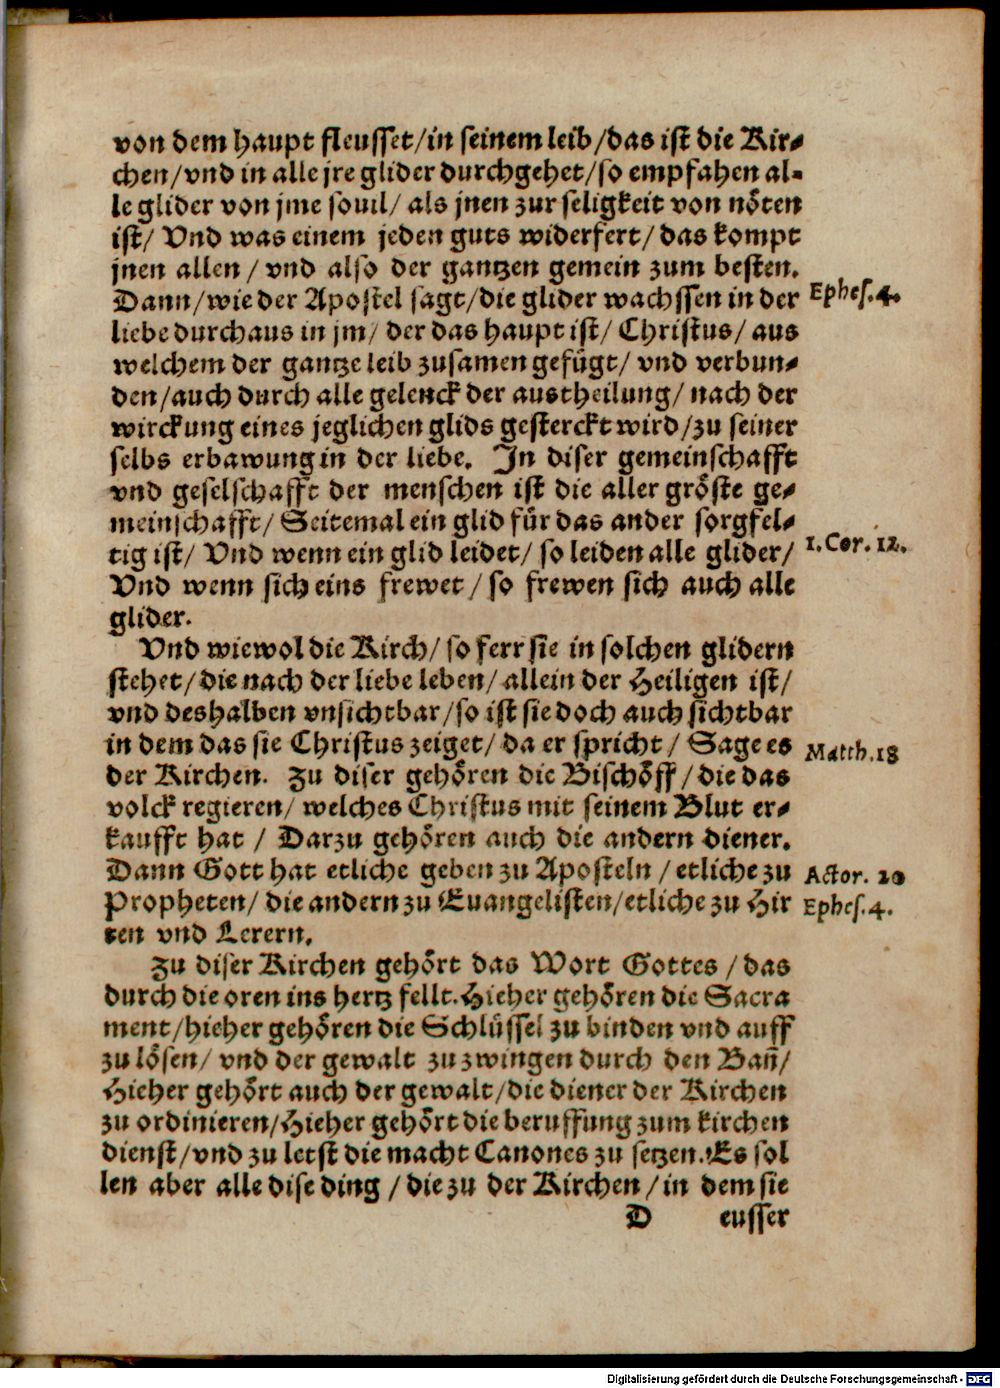 von dem haupt fleusset/in seinem leib/das ist die Kir⸗
chen/vnd in alle jre glider durchgehet/so empfahen al⸗
le glider von jme souil/ als jnen zur seligkeit von nöten
ist/ Vnd was einem jeden guts widerfert/ das kompt
jnen allen / vnd also der gantzen gemein zum besten.
Dann/wie der Apostel sagt/die glider wachssen in der
Ephes.4.
liebe durchaus in jm/ der das haupt ist/ Christus/ aus
welchem der gantze leib zusamen gefügt/ vnd verbun⸗
den/auch durch alle gelenck der austheilung/ nach der
wirckung eines jeglichen glids gesterckt wird/zu seiner
selbs erbawung in der liebe. In diser gemeinschafft
vnd geselschafft der menschen ist die aller gröste ge⸗
meinschafft/ Seitemal ein glid für das ander sorgfel⸗
tig ist/ Vnd wenn ein glid leidet/ so leiden alle glider/
1.Cor.12.
Vnd wenn sich eins frewet / so frewen sich auch alle
glider.
Vnd wiewol die Kirch/ so ferr sie in solchen glidern
stehet/die nach der liebe leben/ allein der Heiligen ist/
vnd deshalben vnsichtbar/so ist sie doch auch sichtbar
in dem das sie Christus zeiget/ da er spricht / Sage es
Matth.18
der Kirchen. Zu diser gehören die Bischöff/die das
volck regieren/ welches Christus mit seinem Blut er⸗
kaufft hat / Darzu gehören auch die andern diener.
Dann Gott hat etliche geben zu Aposteln / etliche zu
Actor. 20
Propheten/ die andern zu Euangelisten/etliche zu Hir
Ephes.4.
ten vnd Lerern.
Zu diser Kirchen gehört das Wort Gottes / das
durch die oren ins hertz fellt. Hieher gehören die Sacra
ment/hieher gehören die Schlüssel zu binden vnd auff
zu lösen/ vnd der gewalt zu zwingen durch den Bañ/
Hieher gehört auch der gewalt/die diener der Kirchen
zu ordinieren/Hieher gehört die beruffung zum kirchen
dienst/vnd zu letst die macht Canones zu setzen. Es sol
len aber alle dise ding / die zu der Kirchen/ in dem sie
D eusser
Digitalisierung gefördert durch die Deutsche Forschungsgemeinschaft - DFG